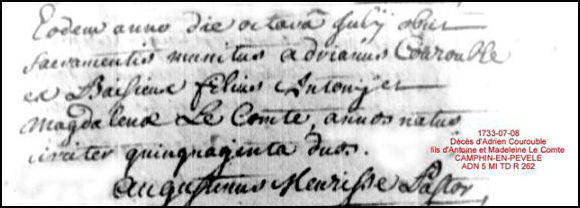 Eodem anno die octavâ Julij obiit
sacramentis munitus Adrianus Courouble
ex Baisieux filius Antonij et
Magdalenæ Le Comte, annos natus
circiter quinquaginta duos.
Augustinus Henrisse Pastor
1733-07-08
Décès d'Adrien Courouble
fils d'Antoine et Madeleine Le Comte
CAMPHIN-EN-PEVELE
ADN 5 MI TD R 262